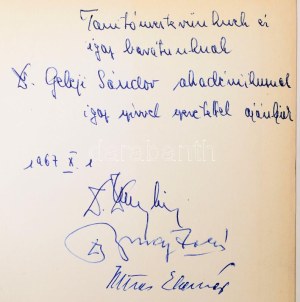 Tanítómesterünknek és
igaz barátunknak
Dr. Geleji Sándor akadémikusnak
igaz szívvel szeretettel ajánljuk
1967 X. 1
Dr.
Dr.